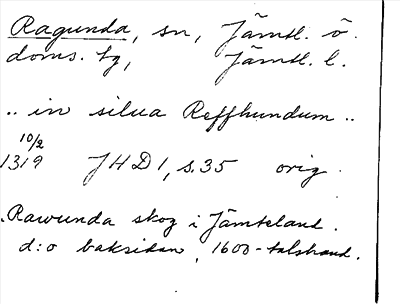 Ragunda, sn, Jämtl. ö.
doms. tg, Jämtl. l.
.. in silua Reffhundum ..
10/2
1319 JHD 1, s. 35 orig.
.Rawunda skog i Jämteland.
d:o baksidan, 1600-talshand.